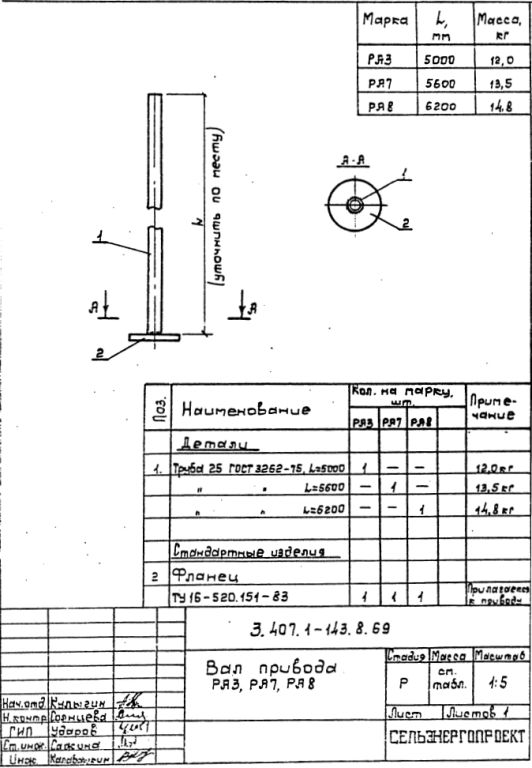 Марка L, мм Масса, кг
РЯ3 5000 12,0
РЯ7 5600 13,5
РЯ8 6200 14,8
А-А
1
2
1
L
(уточнить по месту)
А А
2
Поз. Наименование Кол. на марку, шт. Приме-чание
РЯ3 РЯ7 РЯ8
Детали
1. Труба 25 ГОСТ 3262-75, L=5000 1 — — 12,0 кг
" " L=5600 — 1 — 13,5 кг
" " L=6200 — — 1 14,8 кг
Стандартные изделия
2 Фланец
ТУ 16-520.151-83 1 1 1 Прилагается к приводу
3.407.1-143.8.69
Вал привода
РЯ3, РЯ7, РЯ8
Стадия Масса Масштаб
Р см. табл. 1:5
Лист Листов 1
Нач.отд. Кулыгин
Н.контр. Солнцева
ГИП Ударов
Ст.инж.
Инж.
СЕЛЬЭНЕРГОПРОЕКТ